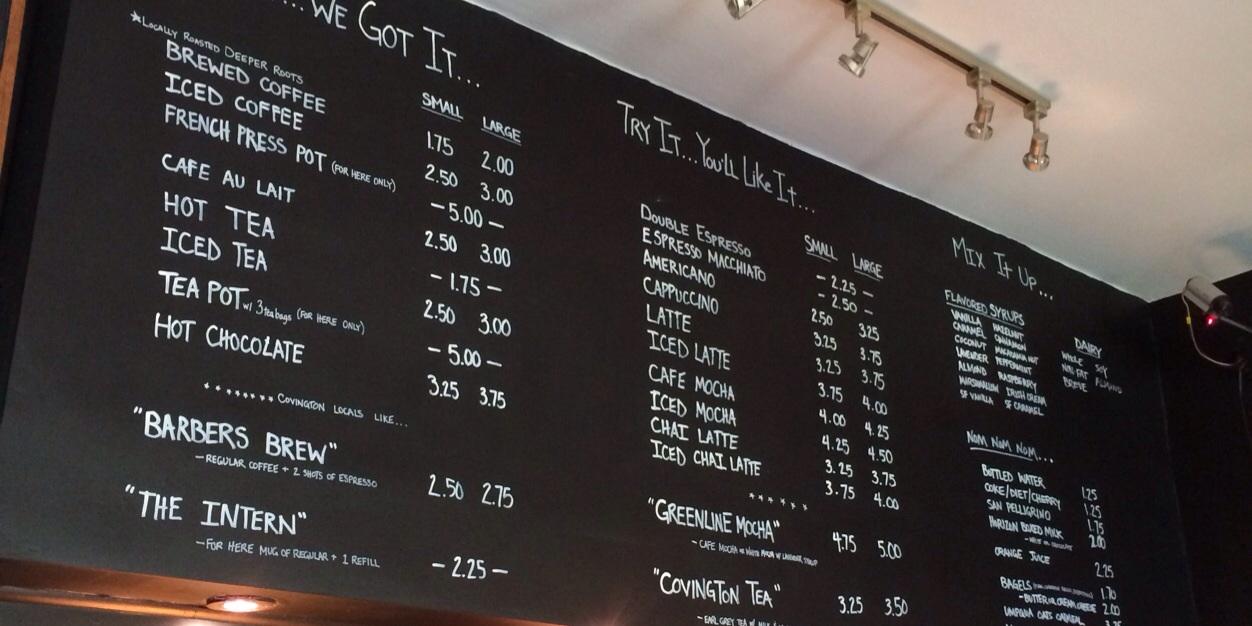 ...WE GOT IT...
*LOCALLY ROASTED DEEPER ROOTS
SMALL LARGE
BREWED COFFEE 1.75 2.00
ICED COFFEE 2.50 3.00
FRENCH PRESS POT (FOR HERE ONLY) -5.00-
CAFE AU LAIT 2.50 3.00
HOT TEA -1.75-
ICED TEA 2.50 3.00
TEA POT w/ 3 tea bags (FOR HERE ONLY) -5.00-
HOT CHOCOLATE 3.25 3.75
******** COVINGTON LOCALS LIKE...
"BARBERS BREW"
-REGULAR COFFEE + 2 SHOTS OF ESPRESSO 2.50 2.75
"THE INTERN"
-FOR HERE MUG OF REGULAR + 1 REFILL -2.25-
TRY IT...YOU'LL LIKE IT...
SMALL LARGE
DOUBLE ESPRESSO -2.25-
ESPRESSO MACCHIATO -2.50-
AMERICANO 2.50 3.25
CAPPUCCINO 3.25 3.75
LATTE 3.25 3.75
ICED LATTE 3.75 4.00
CAFE MOCHA 4.00 4.25
ICED MOCHA 4.25 4.50
CHAI LATTE 3.25 3.75
ICED CHAI LATTE 3.75 4.00
******
"GREENLINE MOCHA" 4.75 5.00
-CAFE MOCHA SYRUP
"COVINGTON TEA" 3.25 3.50
-EARL GREY TEA W/
MIX IT UP...
FLAVORED SYRUPS
VANILLA HAZELNUT
CARAMEL CINNAMON
COCONUT MACADAMIA NUT
LAVENDER PEPPERMINT
ALMOND RASPBERRY
MARSHMALLOW IRISH CREAM
SF VANILLA SF CARAMEL
DAIRY
WHOLE SOY
NON FAT
BREVE ALMOND
NOM NOM NOM...
BOTTLED WATER 1.25
COKE/DIET/CHERRY 1.25
SAN PELLIGRINO 1.75
HORIZON BOXED MILK 2.00
ORANGE JUICE 2.25
BAGELS 1.70
-BUTTER OR CREAM CHEESE 2.00
UMPQUA OATS OATMEAL